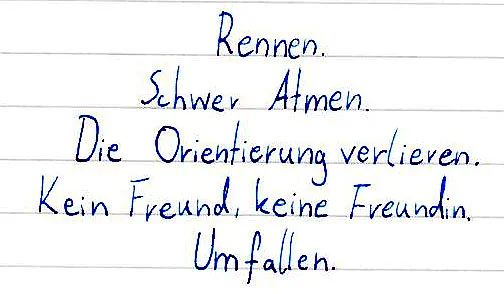 Rennen.
Schwer Atmen.
Die Orientierung verlieren.
Kein Freund, keine Freundin.
Umfallen.